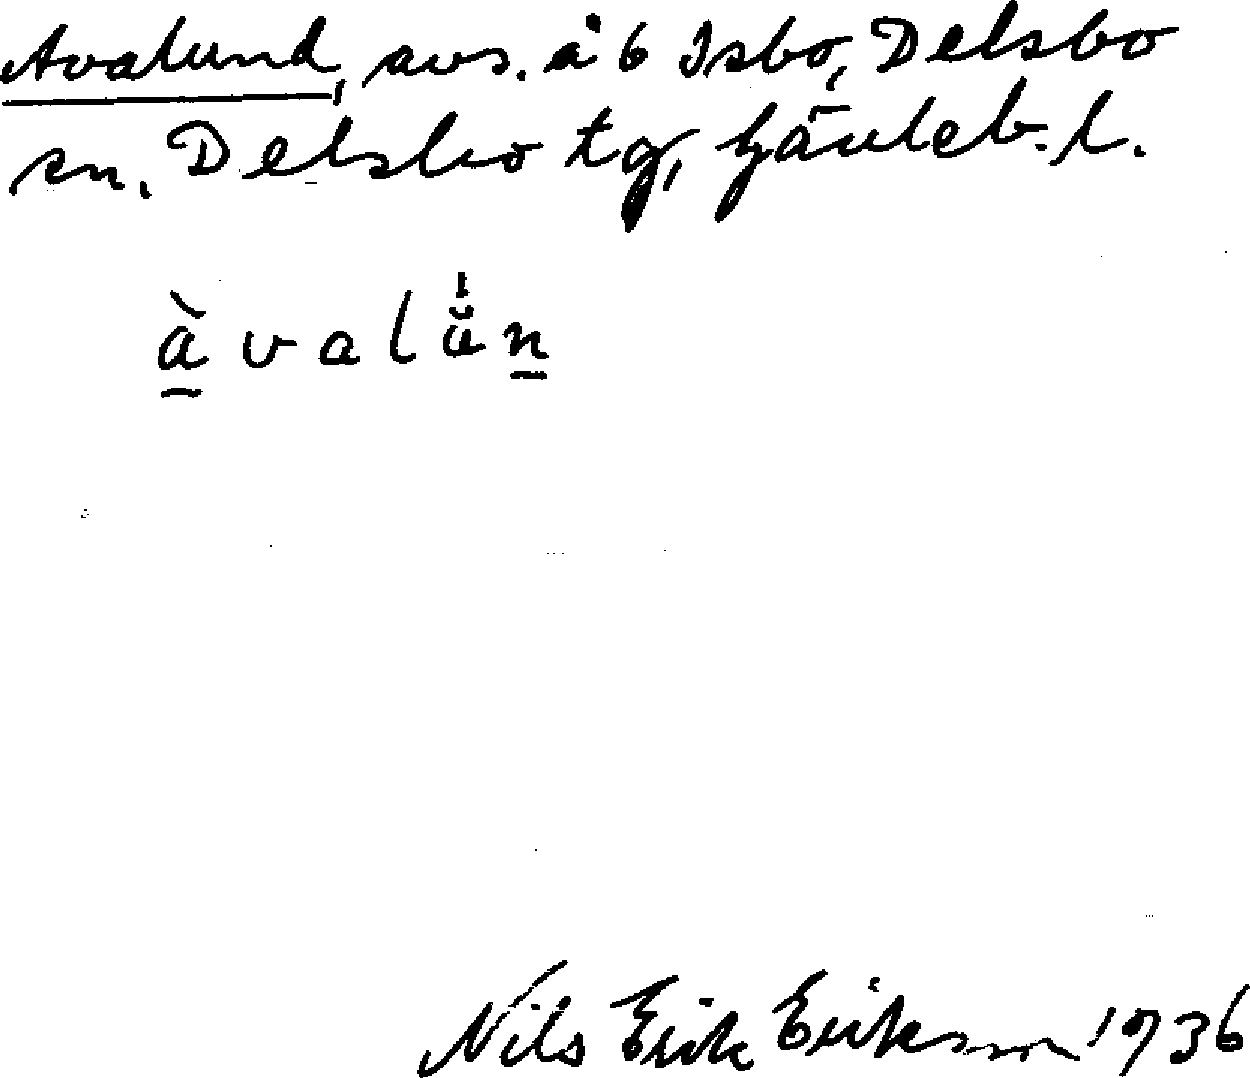 Avalund, avs. å 6 Isbo, Delsbo
sn. Delsbo tg, Gävleb. l.
àvalǻn
Nils Erik Erikson 1936